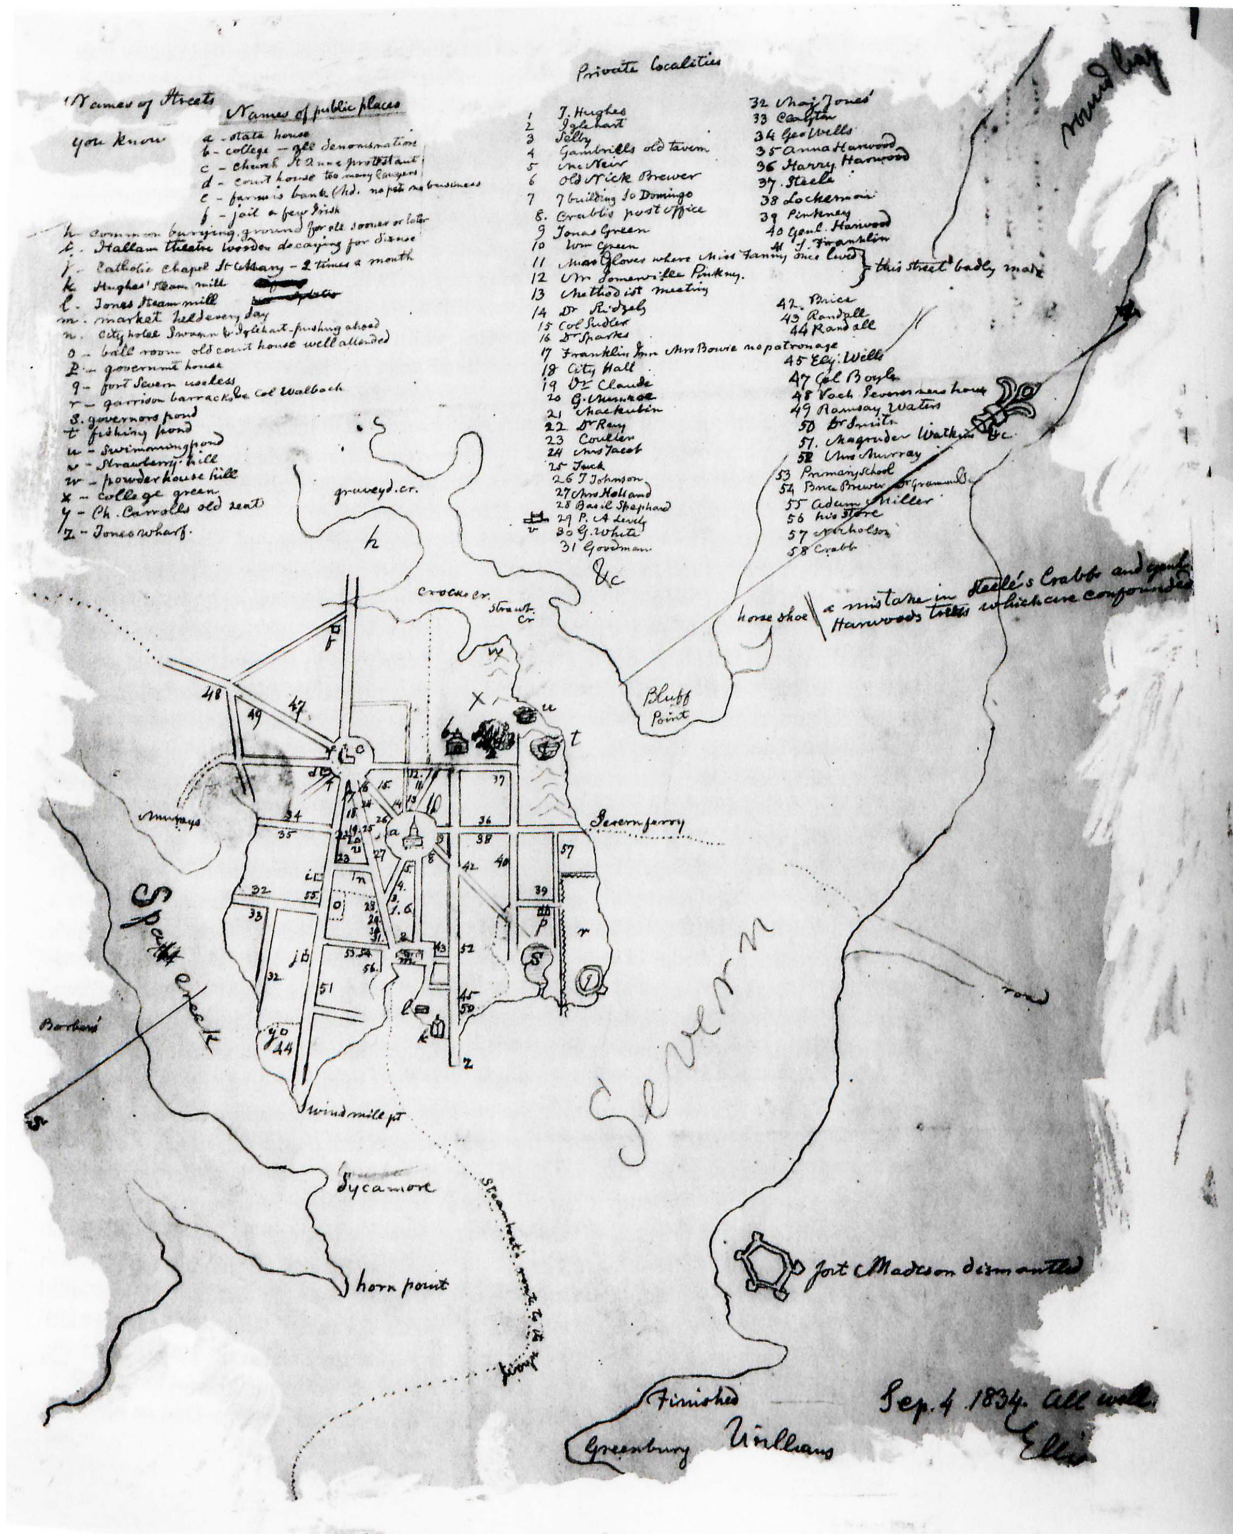 Names of Streets
you know
Names of public places
a - state house
b - college - all denominations
c - church St Anne protestant
d - court house too many lawyers
e - farmers bank no business
f - jail a few Irish
h - common burying ground for all sooner or later
i - Hallam theatre wooden decaying for disuse
j - Catholic chapel St Mary - 2 times a month
k Hughes' steam mill
l - Jones Steam mill
m - market held every day
n - City hotel Swann & Iglehart - pushing ahead
o - ball room old court house well attended
p - government house
q - fort Severn useless
r - garrison barracks &c Col Walbach
s. governors pond
t fishing pond
u - swimming pond
v - Strawberry hill
w - powderhouse hill
x - college green
y - Ch. Carrolls old seat
z - Jones wharf.
Private Localities
1 J. Hughes
2 Iglehart
3 Selby
4 Gambrills old tavern
5 McNeir
6 Old Nick Brewer
7 7 building So Domingo
8. Crabbs post office
9 Jonas Green
10 Wm Green
11 Mrs Gloves where Miss Fanny once lived
12 Mr Somerville Pinkney.
13 Methodist meeting
14 Dr Ridgely
15 Col Sudler
16 Dr Sparks
17 Franklin Inn Mrs Bowie no patronage
18 City Hall
19 Dr Claude
20 G. Munroe
21 Mackubin
22 Dr Revy
23 Coulter
24 Mrs Jacob
25 Tuck
26 T Johnson
27 Mrs Holland
28 Basil Shephard
29 P. A Levely
30 G. White
31 Goodman
&c
32 Maj Jones'
33 Clayton
34 Geo Wells
35 Anna Harwood
36 Harry Harwood
37. Steele
38 Lockerman
39 Pinkney
40 Genl. Harwood
41 T. Franklin
this street badly made
42. Brice
43 Randall
44 Randall
45 Ely. Wells
47 Col Boyle
48 Vach Severns house
49 Ramsay Waters
50 Dr Smith
51. Magruder Watkins &c
52 Mrs Murray
53 Primary School
54 Brice Brewer
55 Adam Miller
56 his store
57 Nicholson
58 Crabb
round bay
graveyd. cr.
h
crocks cr.
strawb. cr
horse shoe
a mistake in Steele's Crabbs and genl
Harwoods which are compounded
Bluff
Point
w
x
u
b
t
f
48
49
47
d
37
34
35
36
38
a
9
8
42
40
57
39
p
r
Severn ferry
Murrays
i
n
32
33
55
o
j
32
51
53.54
56
m
43
52
s
q
45
50
l
k
z
y
44
Spa creek
Barbers'
Severn
road
windmill pt
Sycamore
horn point
Steamboats route to
fort Madison dismantled
Finished
Greenbury
Williams
Sep. 4. 1834. All well.
Ellis